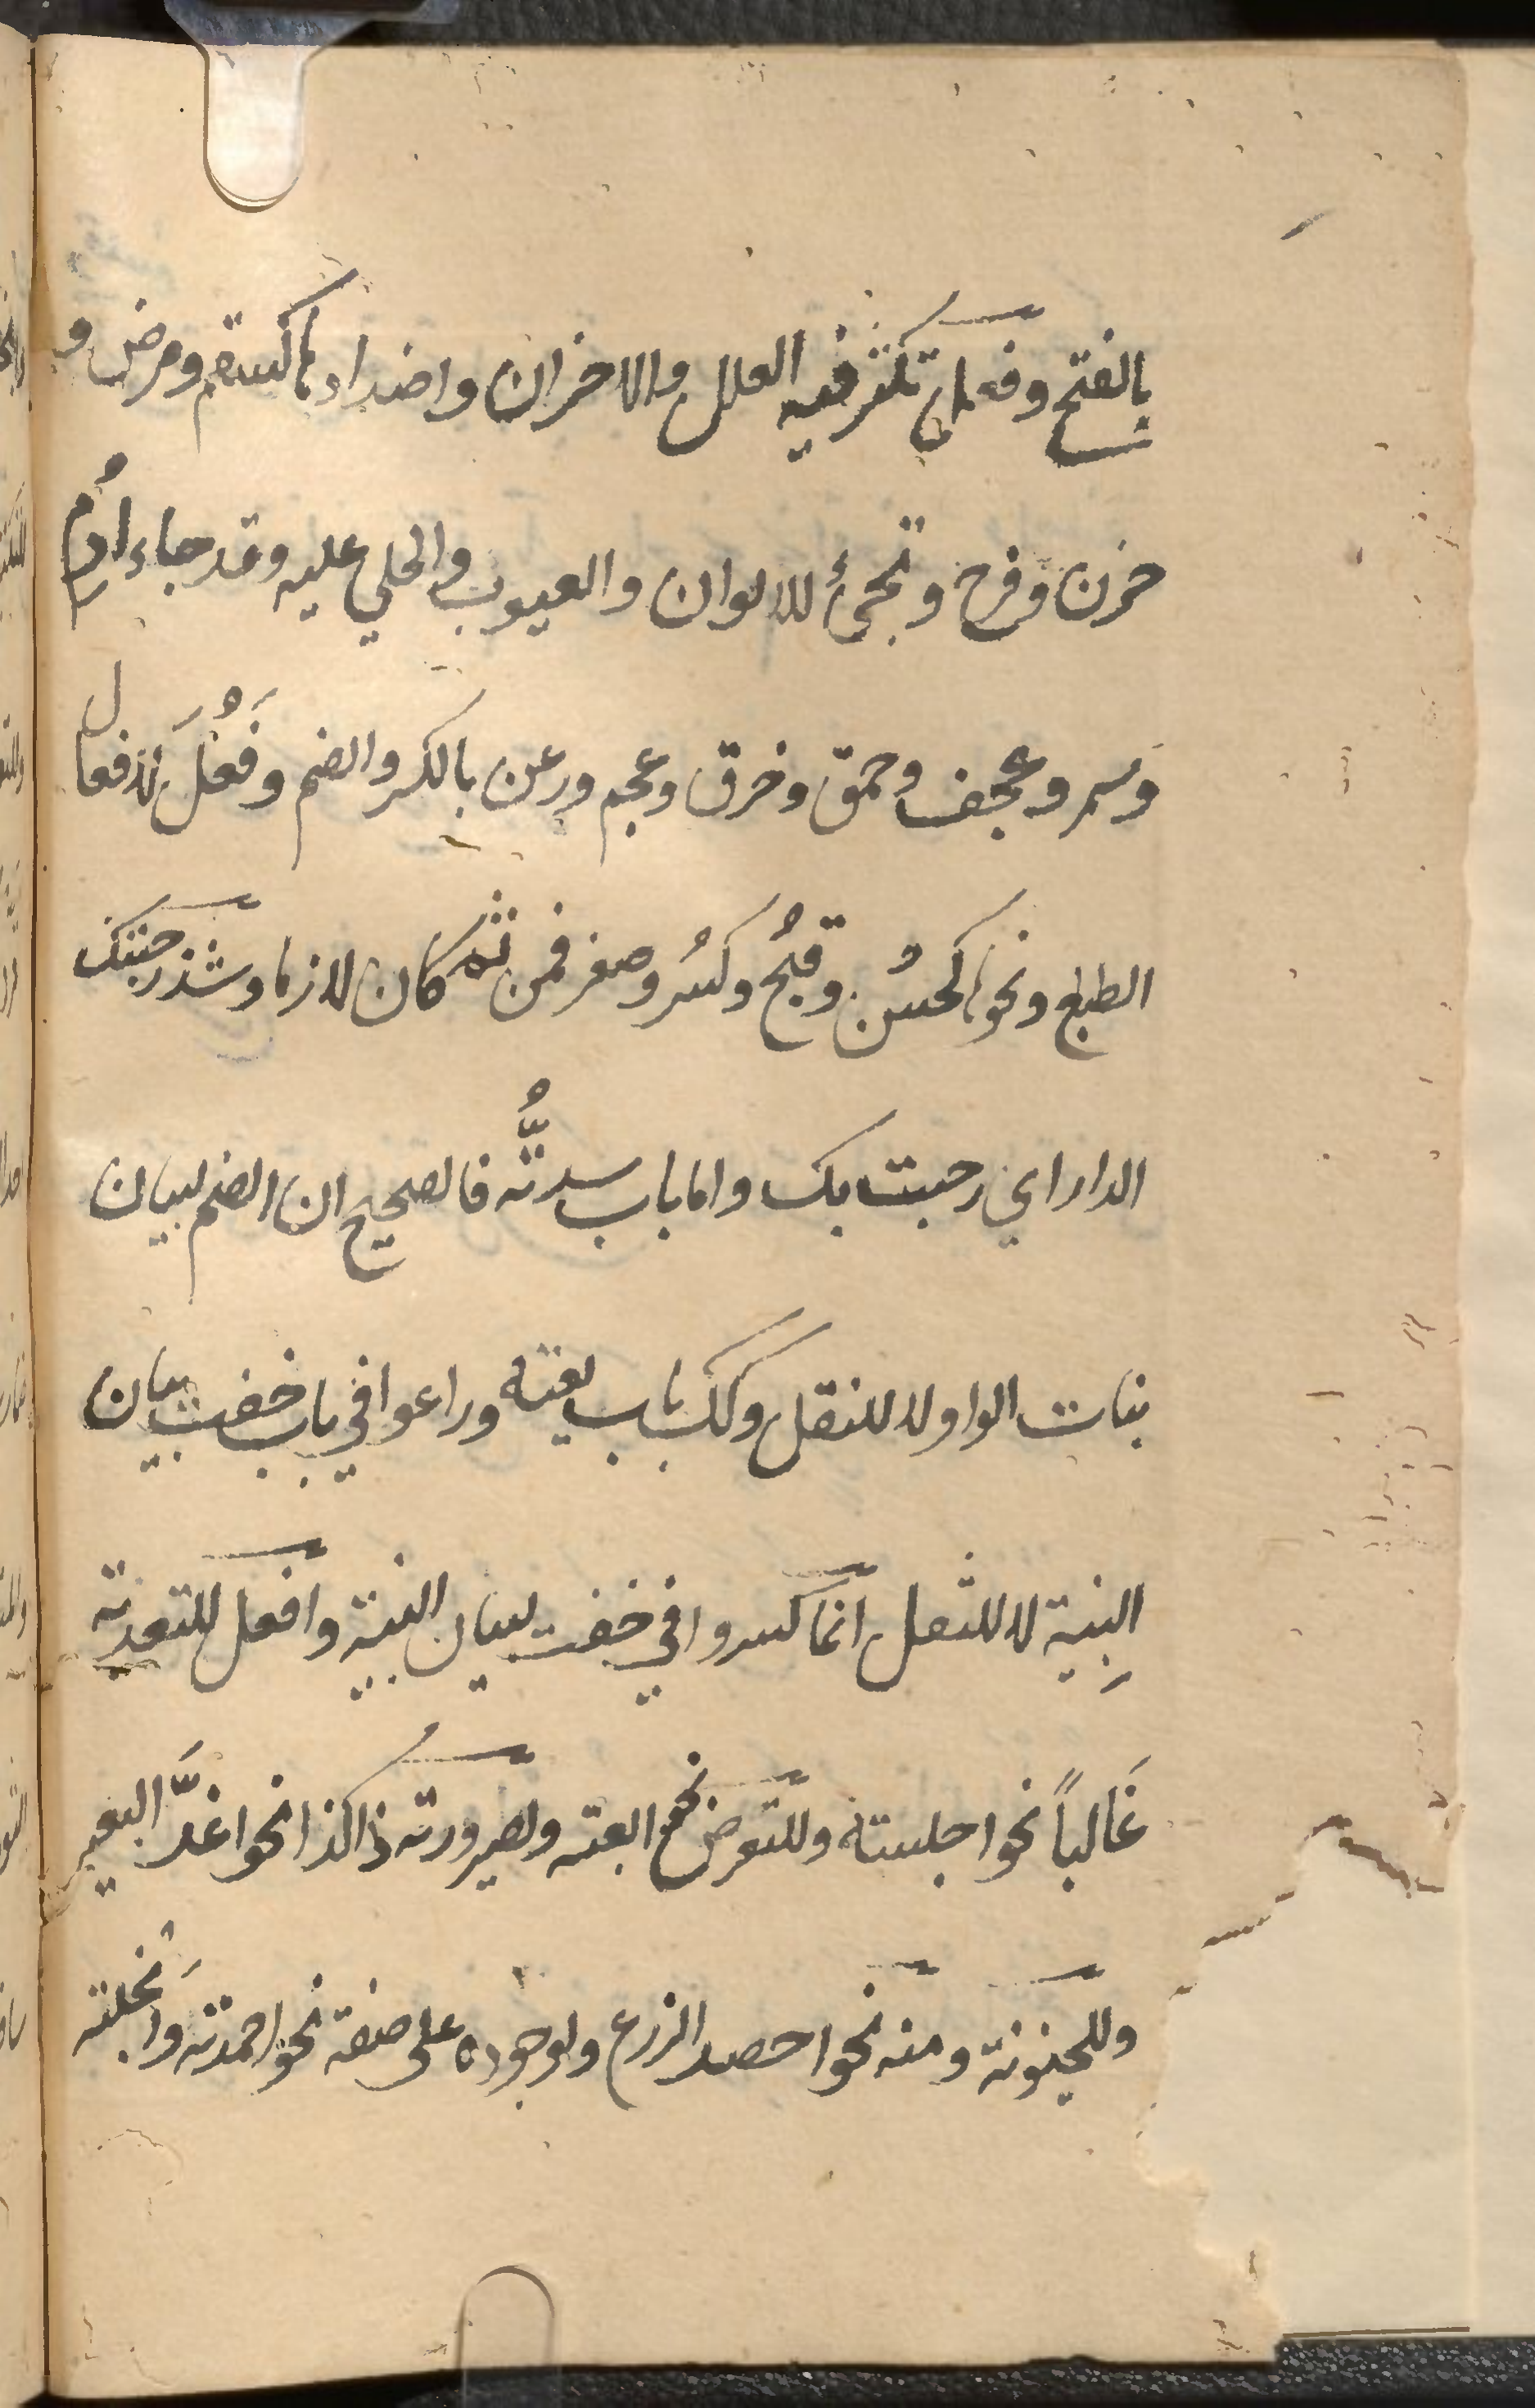 بالفتح وفعل تكثر فيه العلل والاخزان واضدادها كسقم ومرض و
حزن وفرح وتجئ الالوان والعيوب والحلي عليه وقد جاء اَدُم
وسمر وعجف وحمق وخرق وعجم ورعن بالكسر والضم وفَعُلَ لافعال
الطبايع ونحوها كحسُن وقبُح وكبُر وصغر فمن ثمه كان لازما وشذ رحبتك
الدار اي رحبت بك واما باب سدتُّه فالصحيح ان الضم لبيان
بنات الواو لا للنقل وكذلك باب بعته وراعوا في باب خفت بيان
البِنية لا للثقل انما كسروا في خفت لبيان البنية وافعل للتعدية
غَالباً نحو اجلسته وللتعرض نحو ابعته ولصيرورته ذا كذا نحو اغدَّ البعير
وللحينونة ومنه نحو احصد الزرع ولوجوده على صفة نحو احمدته وَانجلته